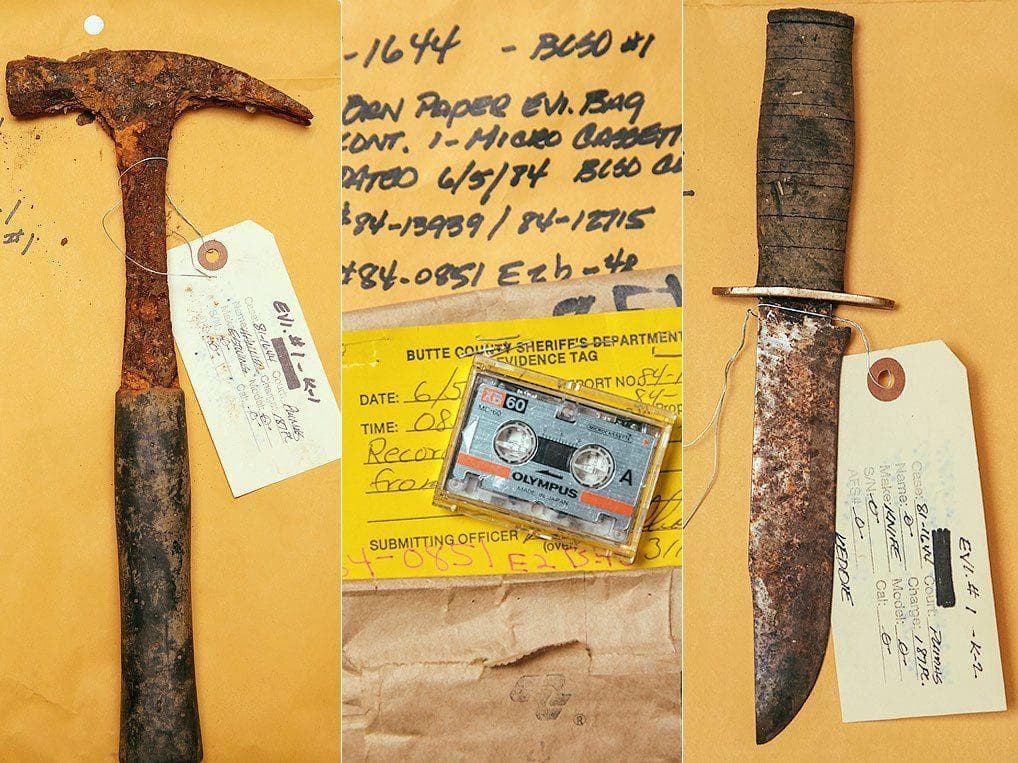 #1
EVI. #1 - K-1
Case: 81-1644 Court: PLUMAS
Charge: 187PC.
Model:
Cal:
-1644 - BCSO #1
BRN PAPER EVI. BAG
CONT. 1-MICRO CASSETT
DATED 6/5/84 BCSO
#84-13939 / 84-12715
#84-0851 E2b-48
BUTTE COUNTY SHERIFF'S DEPARTMENT
EVIDENCE TAG
DATE: 6/5
REPORT NO. 84-1
84-
TIME: 08
Recor
from
XB 60
MC-60
MICROCASSETTE
A
OLYMPUS
MADE IN JAPAN
SUBMITTING OFFICER
(over)
84-0851 E2 B-48
®
EVI. # 1 - K-2
Case: 81-1644 Court: PLUMAS
Name: 0 Charge: 187PC.
Make: KNIFE Model: 0
S/N: 0 Cal: 0
AFS# 0
KEDDIE